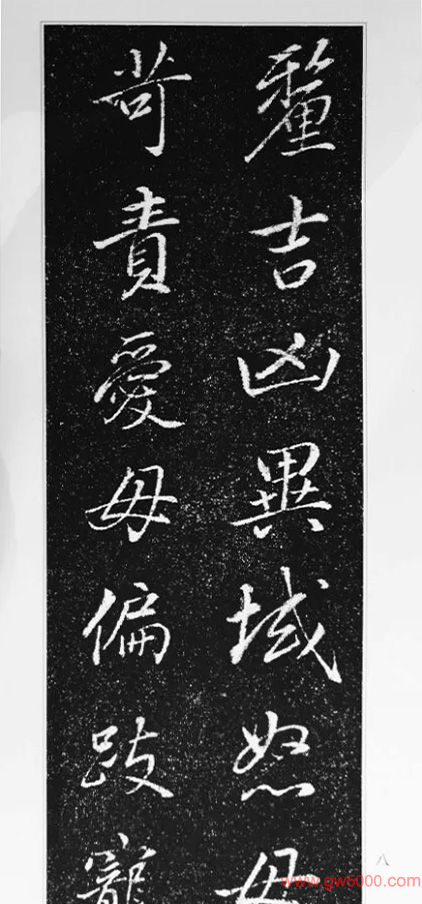 釐吉凶異域怒毋
苛責愛毋偏跂寵
八
www.gw5000.com